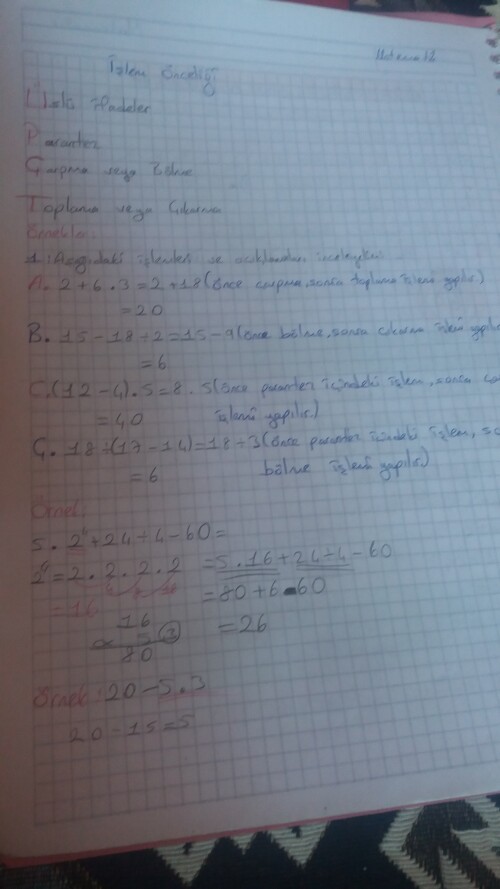 Matematik
İşlem Önceliği
Üslü ifadeler
Parantez
Çarpma veya Bölme
Toplama veya Çıkarma
Örnekler:
1. Aşağıdaki işlemleri ve açıklamaları inceleyelim
A. 2 + 6 . 3 = 2 + 18 (Önce çarpma, sonra toplama işlemi yapılır.)
= 20
B. 15 - 18 ÷ 2 = 15 - 9 (Önce bölme, sonra çıkarma işlemi yapılır
= 6
C. (12 - 4) . 5 = 8 . 5 (Önce parantez içindeki işlem, sonra
= 40 işlemi yapılır.)
Ç. 18 ÷ (17 - 14) = 18 ÷ 3 (Önce parantez içindeki işlem,
= 6 bölme işlemi yapılır.)
Örnek:
5 . 2⁴ + 24 ÷ 4 - 60 =
2⁴ = 2 . 2 . 2 . 2 = 5 . 16 + 24 ÷ 4 - 60
= 16 = 80 + 6 - 60
16 = 26
x 5
80
Örnek: 20 - 5 . 3
20 - 15 = 5